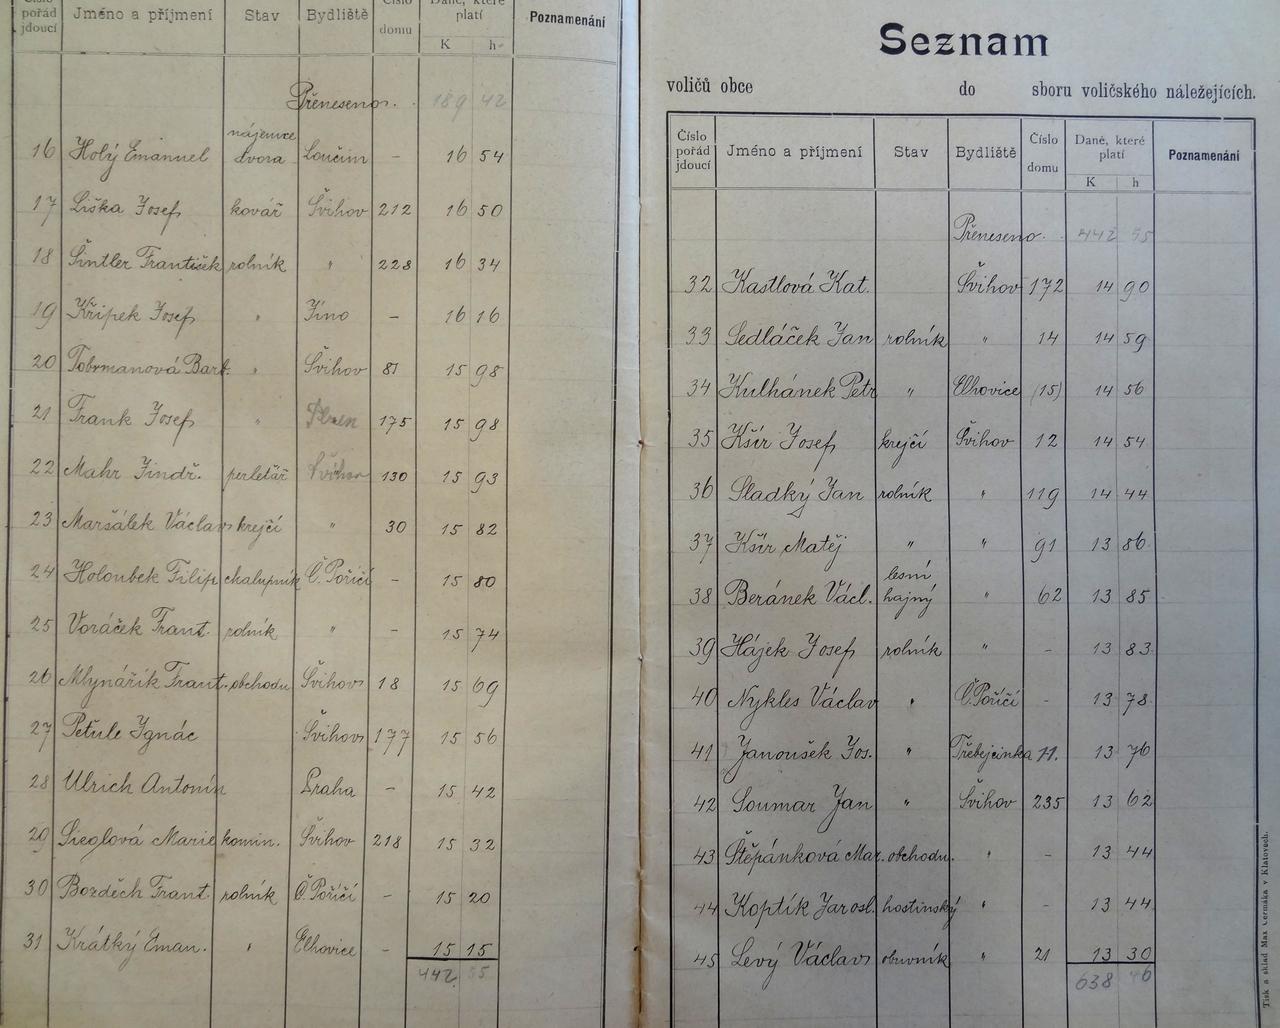 Číslo pořád jdoucí Jméno a příjmení Stav Bydliště Číslo domu Dané, které platí K h Poznamenání
Přeneseno. 189 42
16 Holý Emanuel nájemce dvora Loučim – 16 54
17 Liška Josef kovář Švihov 212 16 50
18 Šintler František rolník " 228 16 34
19 Křipek Josef " Jíno – 16 16
20 Tobrmanová Barb. " Švihov 81 15 98
21 Frank Josef " Plzen 175 15 98
22 Mahr Jindř. perletář Švihov 130 15 93
23 Maršálek Václav krejčí " 30 15 82
24 Holoubek Filip chalupník Č. Poříčí – 15 80
25 Voráček Frant. rolník " – 15 74
26 Mlynářík Frant. obchodn Švihov 18 15 69
27 Petule Ignác Švihov 177 15 56
28 Ulrich Antonín Praha – 15 42
29 Sieglová Marie komin. Švihov 218 15 32
30 Bozděch Frant rolník Č. Poříčí – 15 20
31 Krátký Eman. " Elhovice – 15 15
442 55
Seznam
voličů obce do sboru voličského náležejících.
Číslo pořád jdoucí Jméno a příjmení Stav Bydliště Číslo domu Dané, které platí K h Poznamenání
Přeneseno. 442 55
32 Kastlová Kat. Švihov 172 14 90
33 Sedláček Jan rolník " 14 14 59
34 Kulhánek Petr " Elhovice (15) 14 56
35 Kšír Josef krejčí Švihov 12 14 54
36 Sladký Jan rolník " 119 14 44
37 Kšír Matěj " " 91 13 86
38 Beránek Václ. lesní hajný " 62 13 85
39 Hájek Josef rolník " - 13 83
40 Nykles Václav " Č. Poříčí - 13 78
41 Janoušek Jos. " Třebejcinka 11. 13 76
42 Soumar Jan " Švihov 235 13 62
43 Štěpánková Mar. obchodn. " - 13 44
44 Koptík Jarosl. hostinský " - 13 44
45 Levý Václav obuvník " 21 13 30
638 46
Tisk a sklad Max Čermáka v Klatovech.